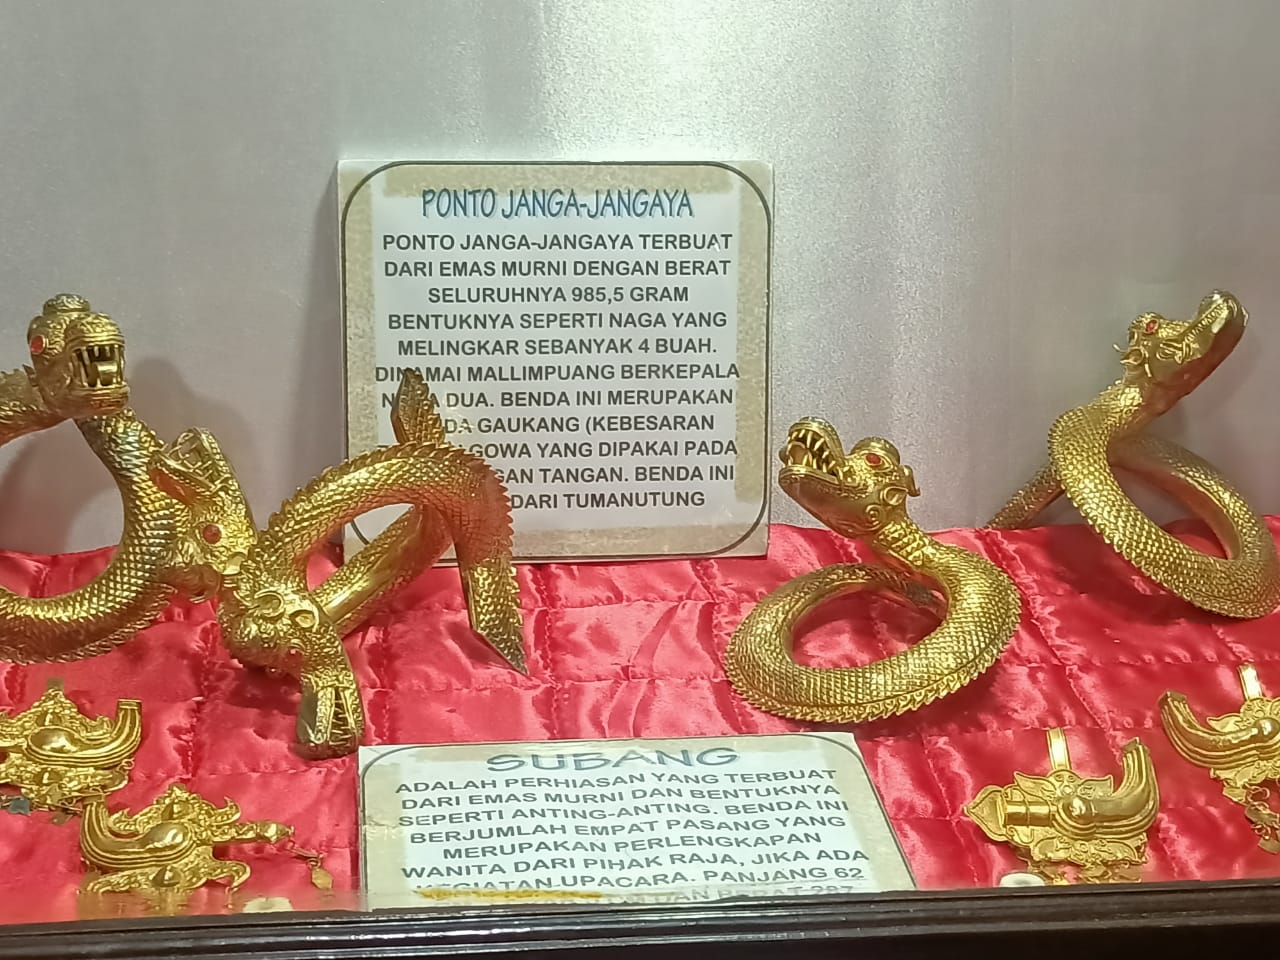 PONTO JANGA-JANGAYA
PONTO JANGA-JANGAYA TERBUAT
DARI EMAS MURNI DENGAN BERAT
SELURUHNYA 985,5 GRAM
BENTUKNYA SEPERTI NAGA YANG
MELINGKAR SEBANYAK 4 BUAH.
DINAMAI MALLIMPUANG BERKEPALA
DUA. BENDA INI MERUPAKAN
GAUKANG (KEBESARAN
GOWA YANG DIPAKAI PADA
TANGAN. BENDA INI
DARI TUMANUTUNG
SUBANG
ADALAH PERHIASAN YANG TERBUAT
DARI EMAS MURNI DAN BENTUKNYA
SEPERTI ANTING-ANTING. BENDA INI
BERJUMLAH EMPAT PASANG YANG
MERUPAKAN PERLENGKAPAN
WANITA DARI PIHAK RAJA, JIKA ADA
KEGIATAN UPACARA. PANJANG 62
DAN BERAT 287